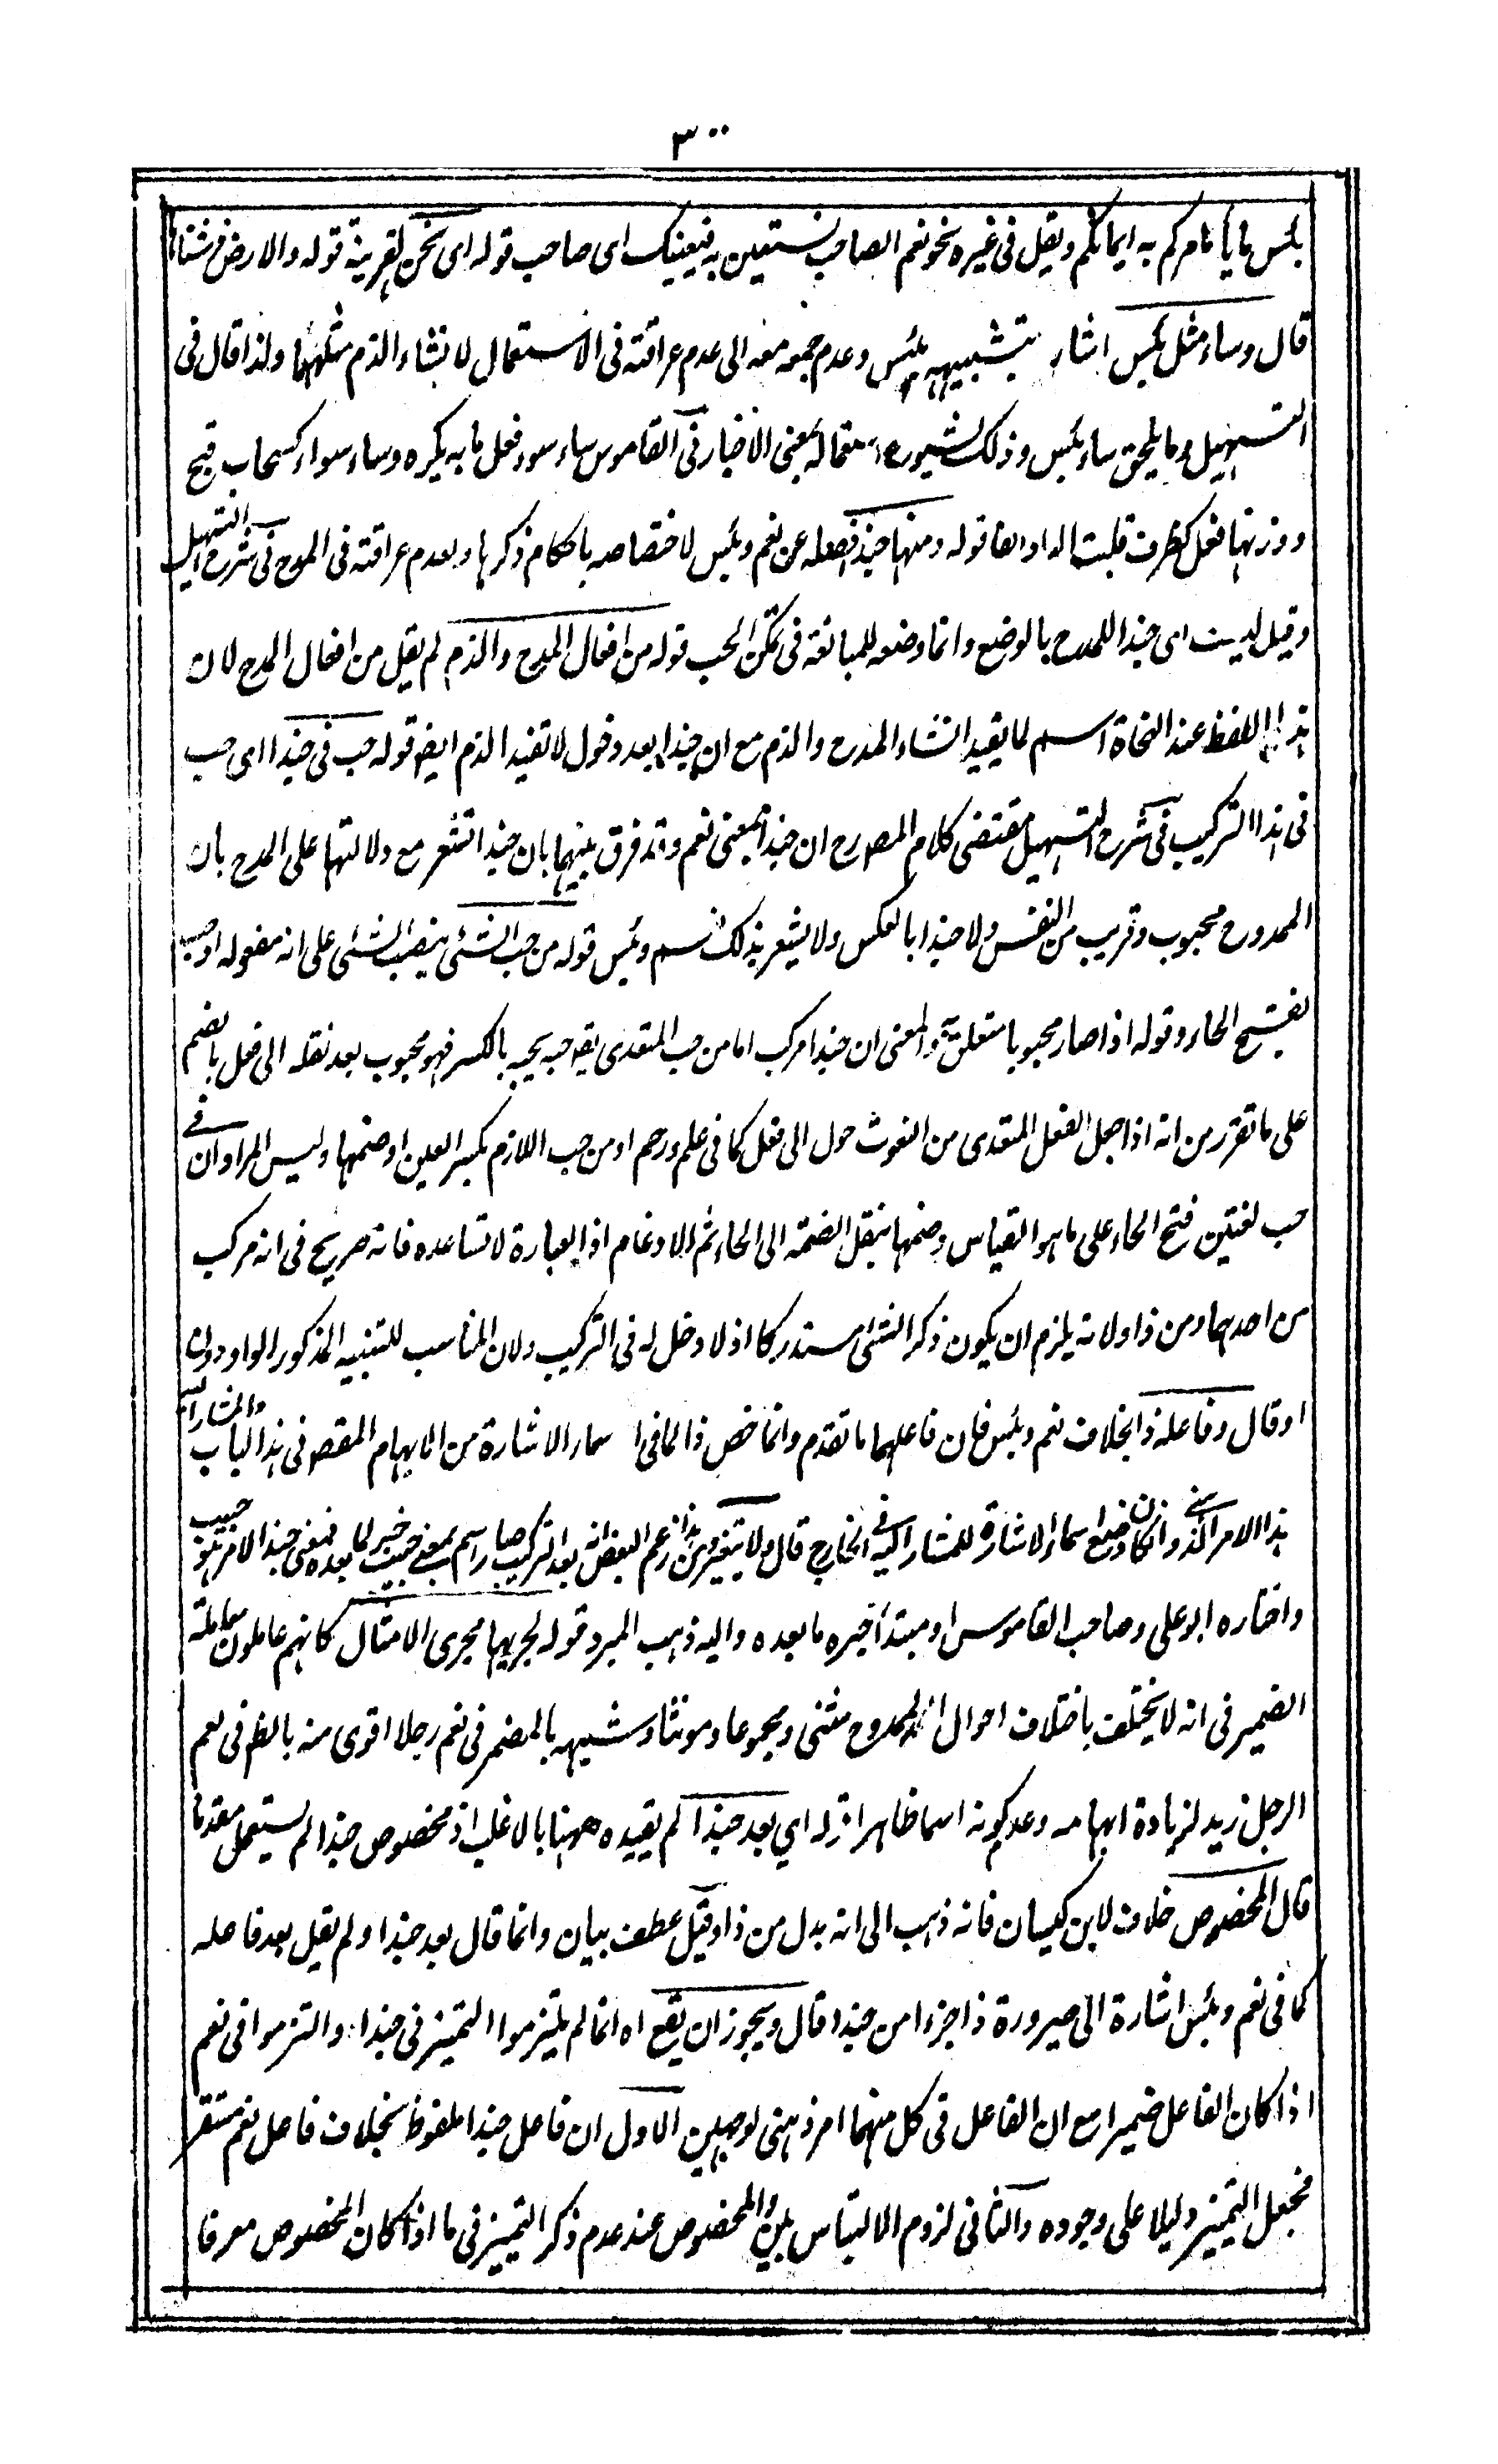 ٣٠٠
بئس ما يأمركم به ايمانكم ويقل فى غيره نحو نعم الصاحب نستعين به فيعينك اى صاحب قوله اى نحن لقرينة قوله والارض فرشناها
قال وساء مثل بئس اشار بتشبيهه ببئس وعدم جمعه معه الى عدم عراقته فى الاستعمال لانشاء الذم مثلهما ولذا قال فى
التسهيل وما يلحق ساء ببئس وذلك لشيوع استعماله بمعنى الاخبار فى القاموس ساء سوء فعل ما به يكره وساء سواء كسحاب قبح
ووزنها فعل كظرف قلبت الواو الفا قوله ومنها حبذا فصله عن نعم وبئس لاختصاصه باحكام ذكرها وبعدم عراقته فى المدح فى شرح التسهيل
وقيل ليست اى حبذا للمدح بالوضع وانما وضعه للمبالغة فى تمكن الحب قوله من افعال المدح والذم لم يقل من افعال المدح لان
هذا اللفظ عند النحاة اسم لما يفيد انشاء المدح والذم مع ان حبذا بعد دخول لا تفيد الذم ايضا قوله حب فى حبذا اى حب
فى هذا التركيب فى شرح التسهيل مقتضى كلام المصرح ان حبذا بمعنى نعم وقد فرق بينهما بان حبذا تشعر مع دلالتها على المدح بان
الممدوح محبوب وقريب من النفس ولا حبذا بالعكس ولا يشعر بذلك نعم وبئس قوله من حب الشئ بنصب الشئ على انه مفعوله اوحب
بفتح الحاء وقوله اذا صار محبوبا متعلق به والمعنى ان حبذا مركب اما من حب المتعدى يقو حبه يحبه بالكسر فهو محبوب بعد نقله الى فعل بالضم
على ما تقرر من انه اذا جعل الفعل المتعدى من النعوت حول الى فعل كما فى علم ورحم او من حب اللازم بكسر العين او ضمها وليس المراد ان فى
حب لغتين فتح الحاء على ما هو القياس وضمها بنقل الضمة الى الحاء ثم الادغام اذ العبارة لا تساعده فانه صريح فى انه مركب
من احدهما ومن ذا ولانه يلزم ان يكون ذكر الشئ مستدركا اذ لا دخل له فى التركيب ولان المناسب للتنبيه المذكور الواو دون
او قال وفاعله ذا بخلاف نعم وبئس فان فاعلهما ما تقدم وانما خص ذا لما فى اسماء الاشارة من الابهام المقصو فى هذا الباب والمشار اليه
هذا الامر الذهنى وان كان وضع اسماء الاشارة للمشار اليه فى الخارج قال ولا يتغير ومن هذا زعم البعض انه بعد التركيب صار اسم بمعنى حبيب خبر لما بعده فمعنى حبذا الامر هو حبيب
واختاره ابو على وصاحب القاموس او مبتدأ خبره ما بعده واليه ذهب المبرد قوله لجريها مجرى الامثال كانهم عاملون معاملة
الضمير فى انه لا يختلف باختلاف احوال الممدوح مثنى ومجموعا ومونثا وشبهه بالمضمر فى نعم رجلا اقوى منه بالظ فى نعم
الرجل زيد لزيادة ابهامه وعدم كونه اسما ظاهرا قوله اي بعد حبذا لم يقيده ههنا بالاغلب اذ مخصوص حبذا لم يستعمل مقدما
قال المخصوص خلاف لابن كيسان فانه ذهب الى انه بدل من ذا وقيل عطف بيان وانما قال بعد حبذا ولم يقل بعد فاعله
كما فى نعم وبئس اشارة الى صيرورة ذا جزءا من حبذا قال ويجوز ان يقع اه انما لم يلتزموا التميز فى حبذا والتزموا فى نعم
اذا كان الفاعل ضميرا مع ان الفاعل فى كل منهما امر ذهنى لوجهين الاول ان فاعل حبذا ملفوظ بخلاف فاعل نعم مستتر
فجعل التميز دليلا على وجوده والثانى لزوم الالتباس بين والمخصوص عند عدم ذكر التميز فى ما اذا كان المخصوص معرفا